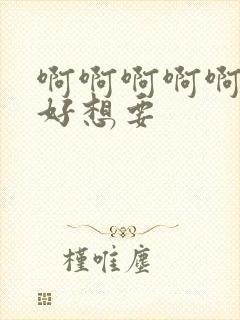 啊啊啊啊啊
好想要
槿唯尘